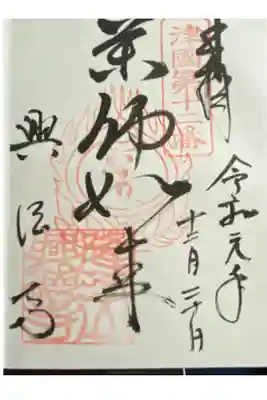 奉拝
津國第十
令和元年
十二月二十日
薬師如来
興法寺